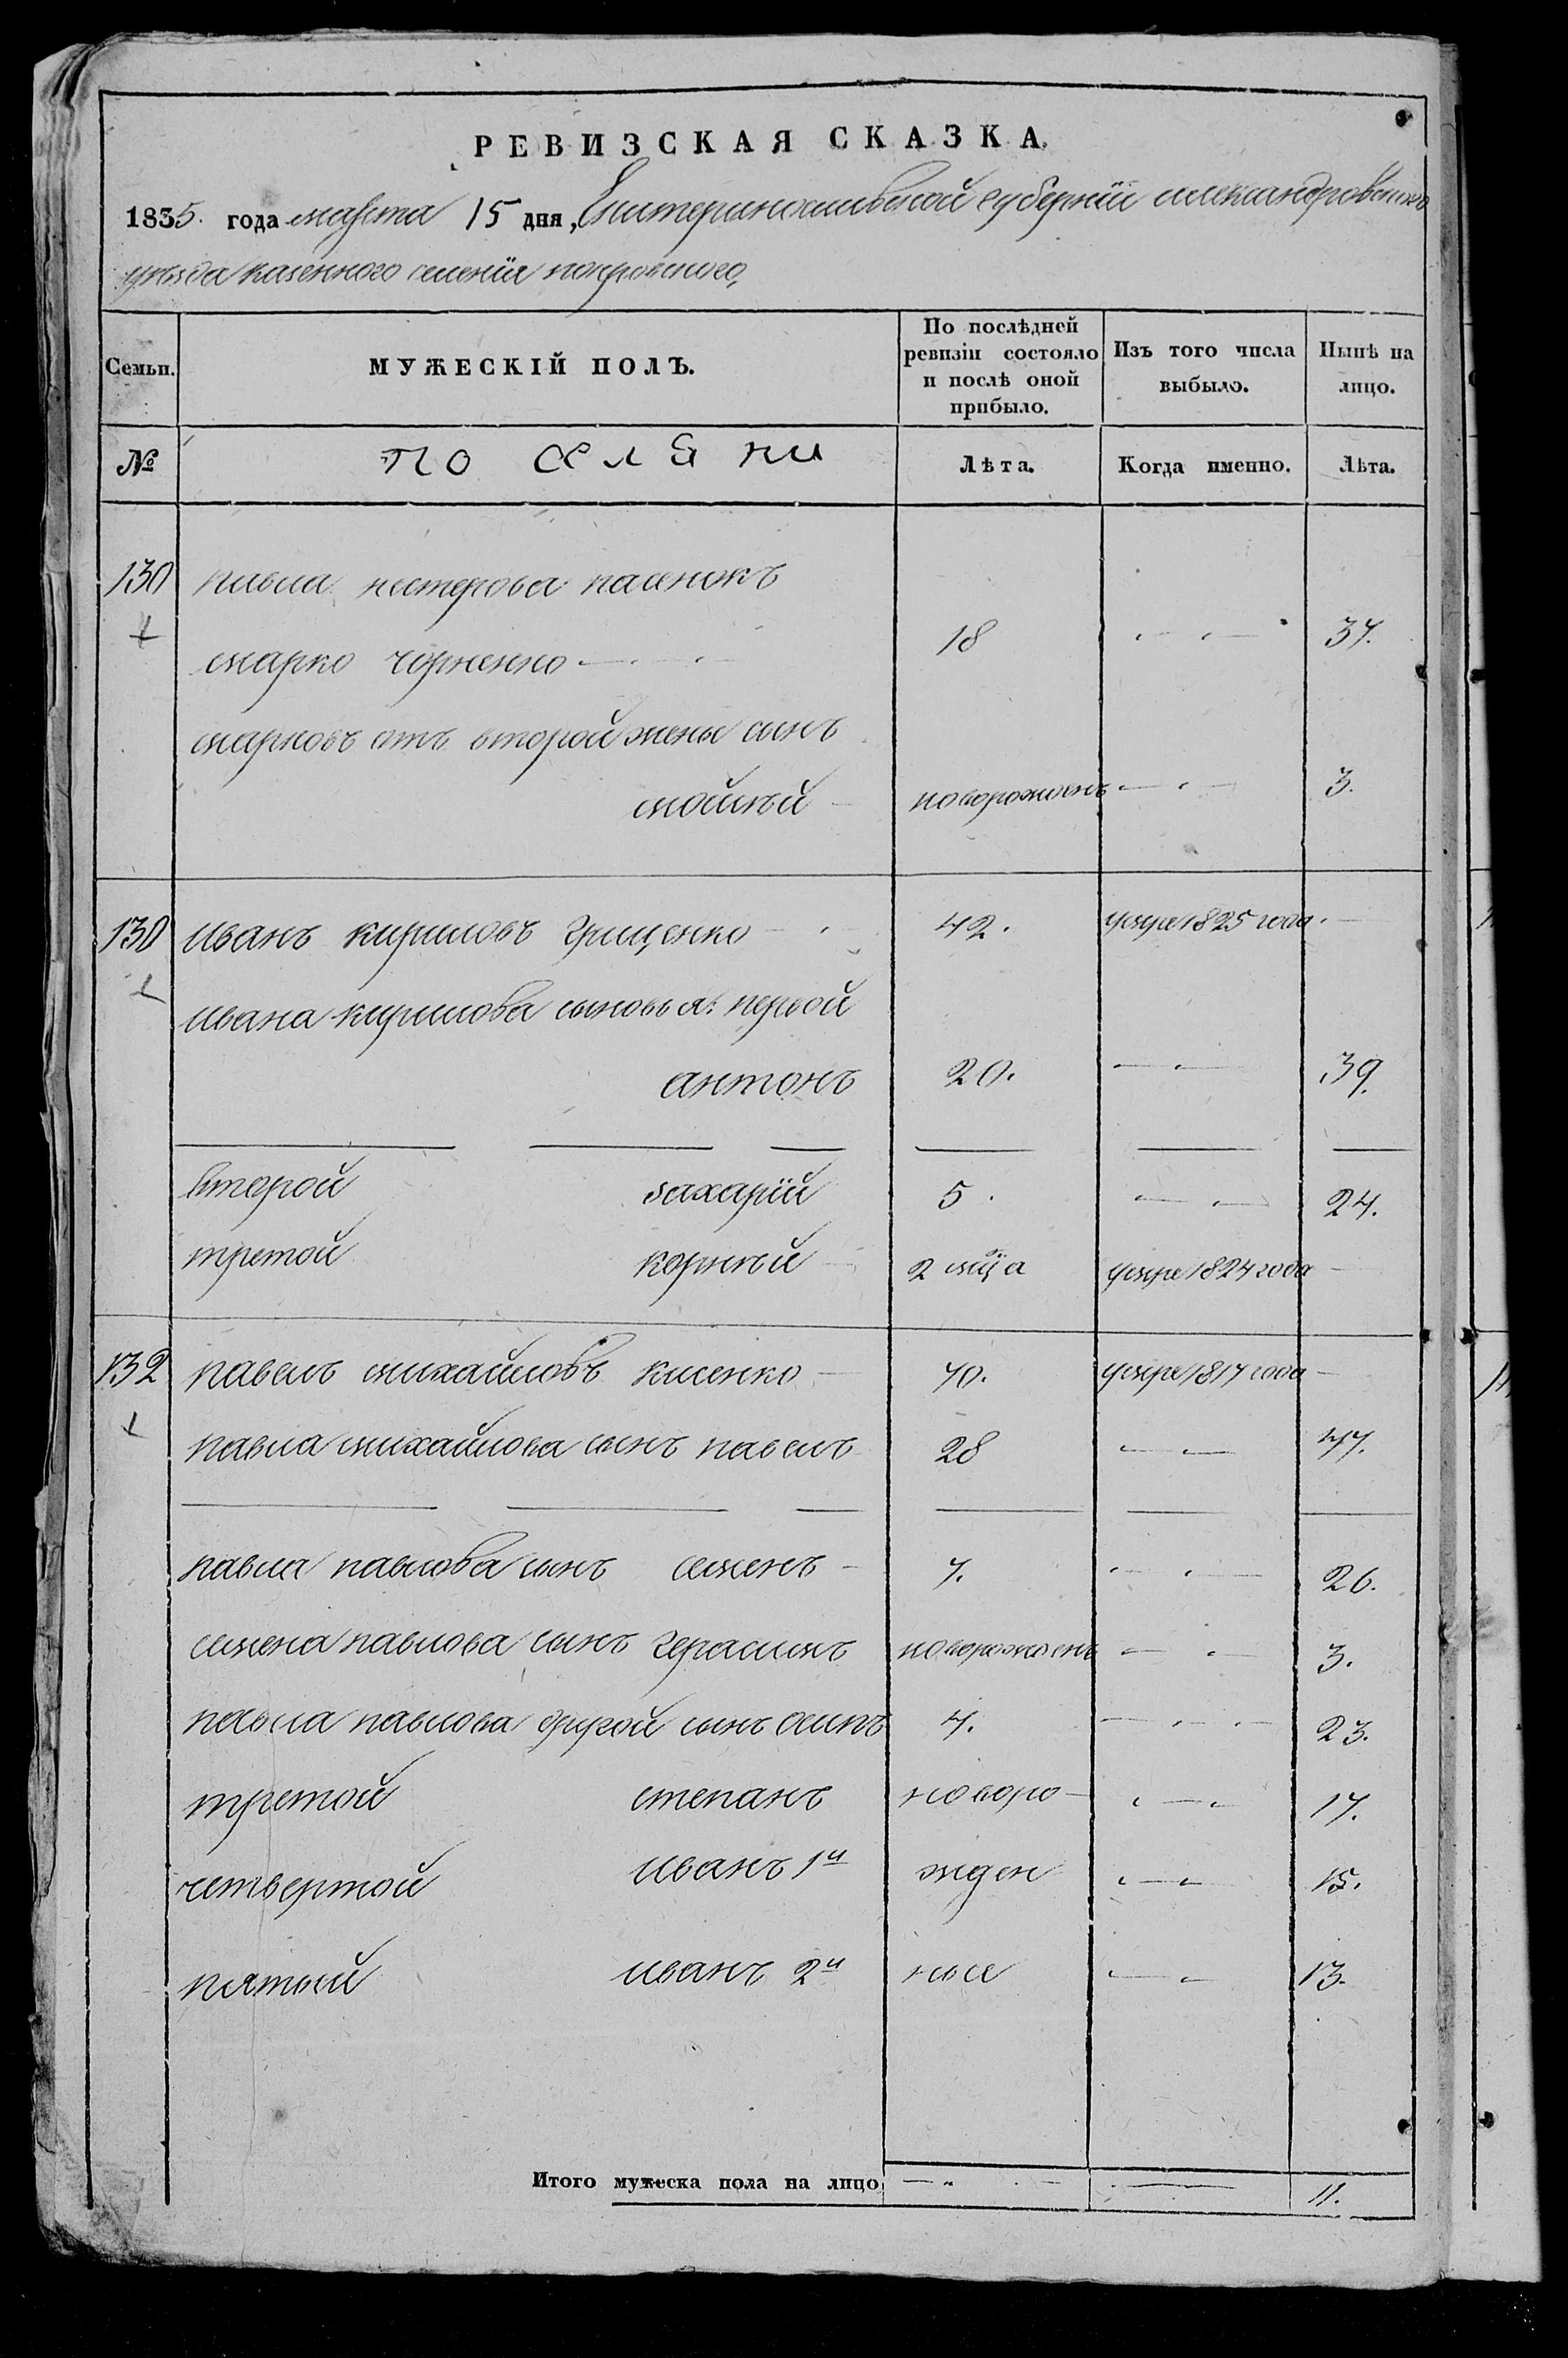 РЕВИЗСКАЯ СКАЗКА
1835. года марта 15 дня, Екатеринославской губерніи александровскаго
уезда казенного селенія покровского,
Семьи.
МУЖЕСКІЙ ПОЛЪ.
По послѣдней ревизіи состояло и послѣ оной прибыло.
Изъ того числа выбыло.
Нынѣ на лицо.
№ поселяни Лѣта. Когда именно. Лѣта.
130 павла нестерова
марко чорненко 18 37.
марковъ отъ второй жены сынъ
мойсѣй новорожденъ 3.
130 иванъ кириловъ Грищенко 42. умре 1825 года
ивана кирилова сыновья: первой
антонъ 20. 39.
второй захарій 5. 24.
третой корнѣй 2 мца умре 1824 года
132 павелъ михайловъ кисенко 40. умре 1817 года
павла михайлова сынъ павелъ 28 47.
павла павлова сынъ семенъ 7. 26.
семена павлова сынъ герасимъ новорожденъ 3.
павла павлова другой сынъ осипъ 4. 23.
третой степанъ новоро- 17.
четвертой иванъ 1й жден 15.
пятый иванъ 2й ные 13.
Итого мужеска пола на лицо 11.